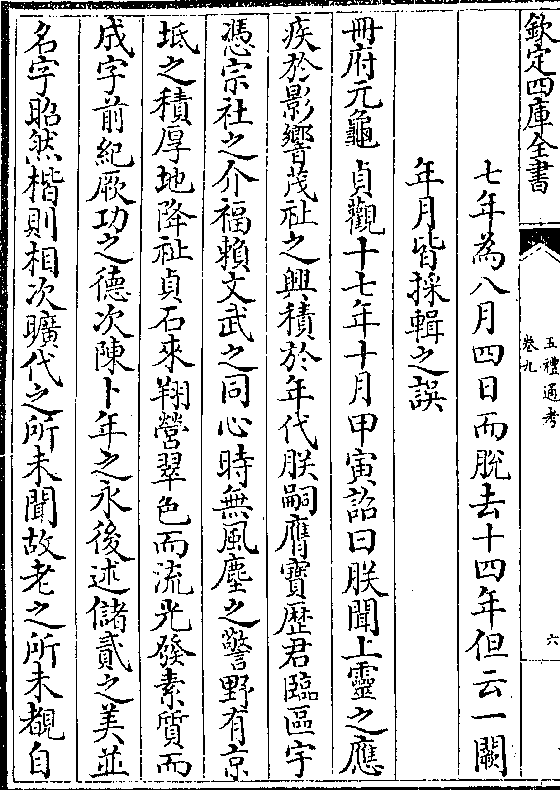 欽定四庫全書
五禮通考
卷九
六
七年為八月四日而脫去十四年但云一闕
年月皆採輯之誤
冊府元龜 貞觀十七年十月甲寅詔曰朕聞上靈之應
疾於影響茂祉之興積於年代朕嗣膺寶歷君臨區宇
憑宗社之介福賴文武之同心時無風塵之警野有京
坻之積厚地降祉貞石來翔營翠色而流光發素質而
成字前紀厥功之德次陳卜年之永後述儲貳之美並
名字昭然楷則相次曠代之所未聞故老之所未覩自